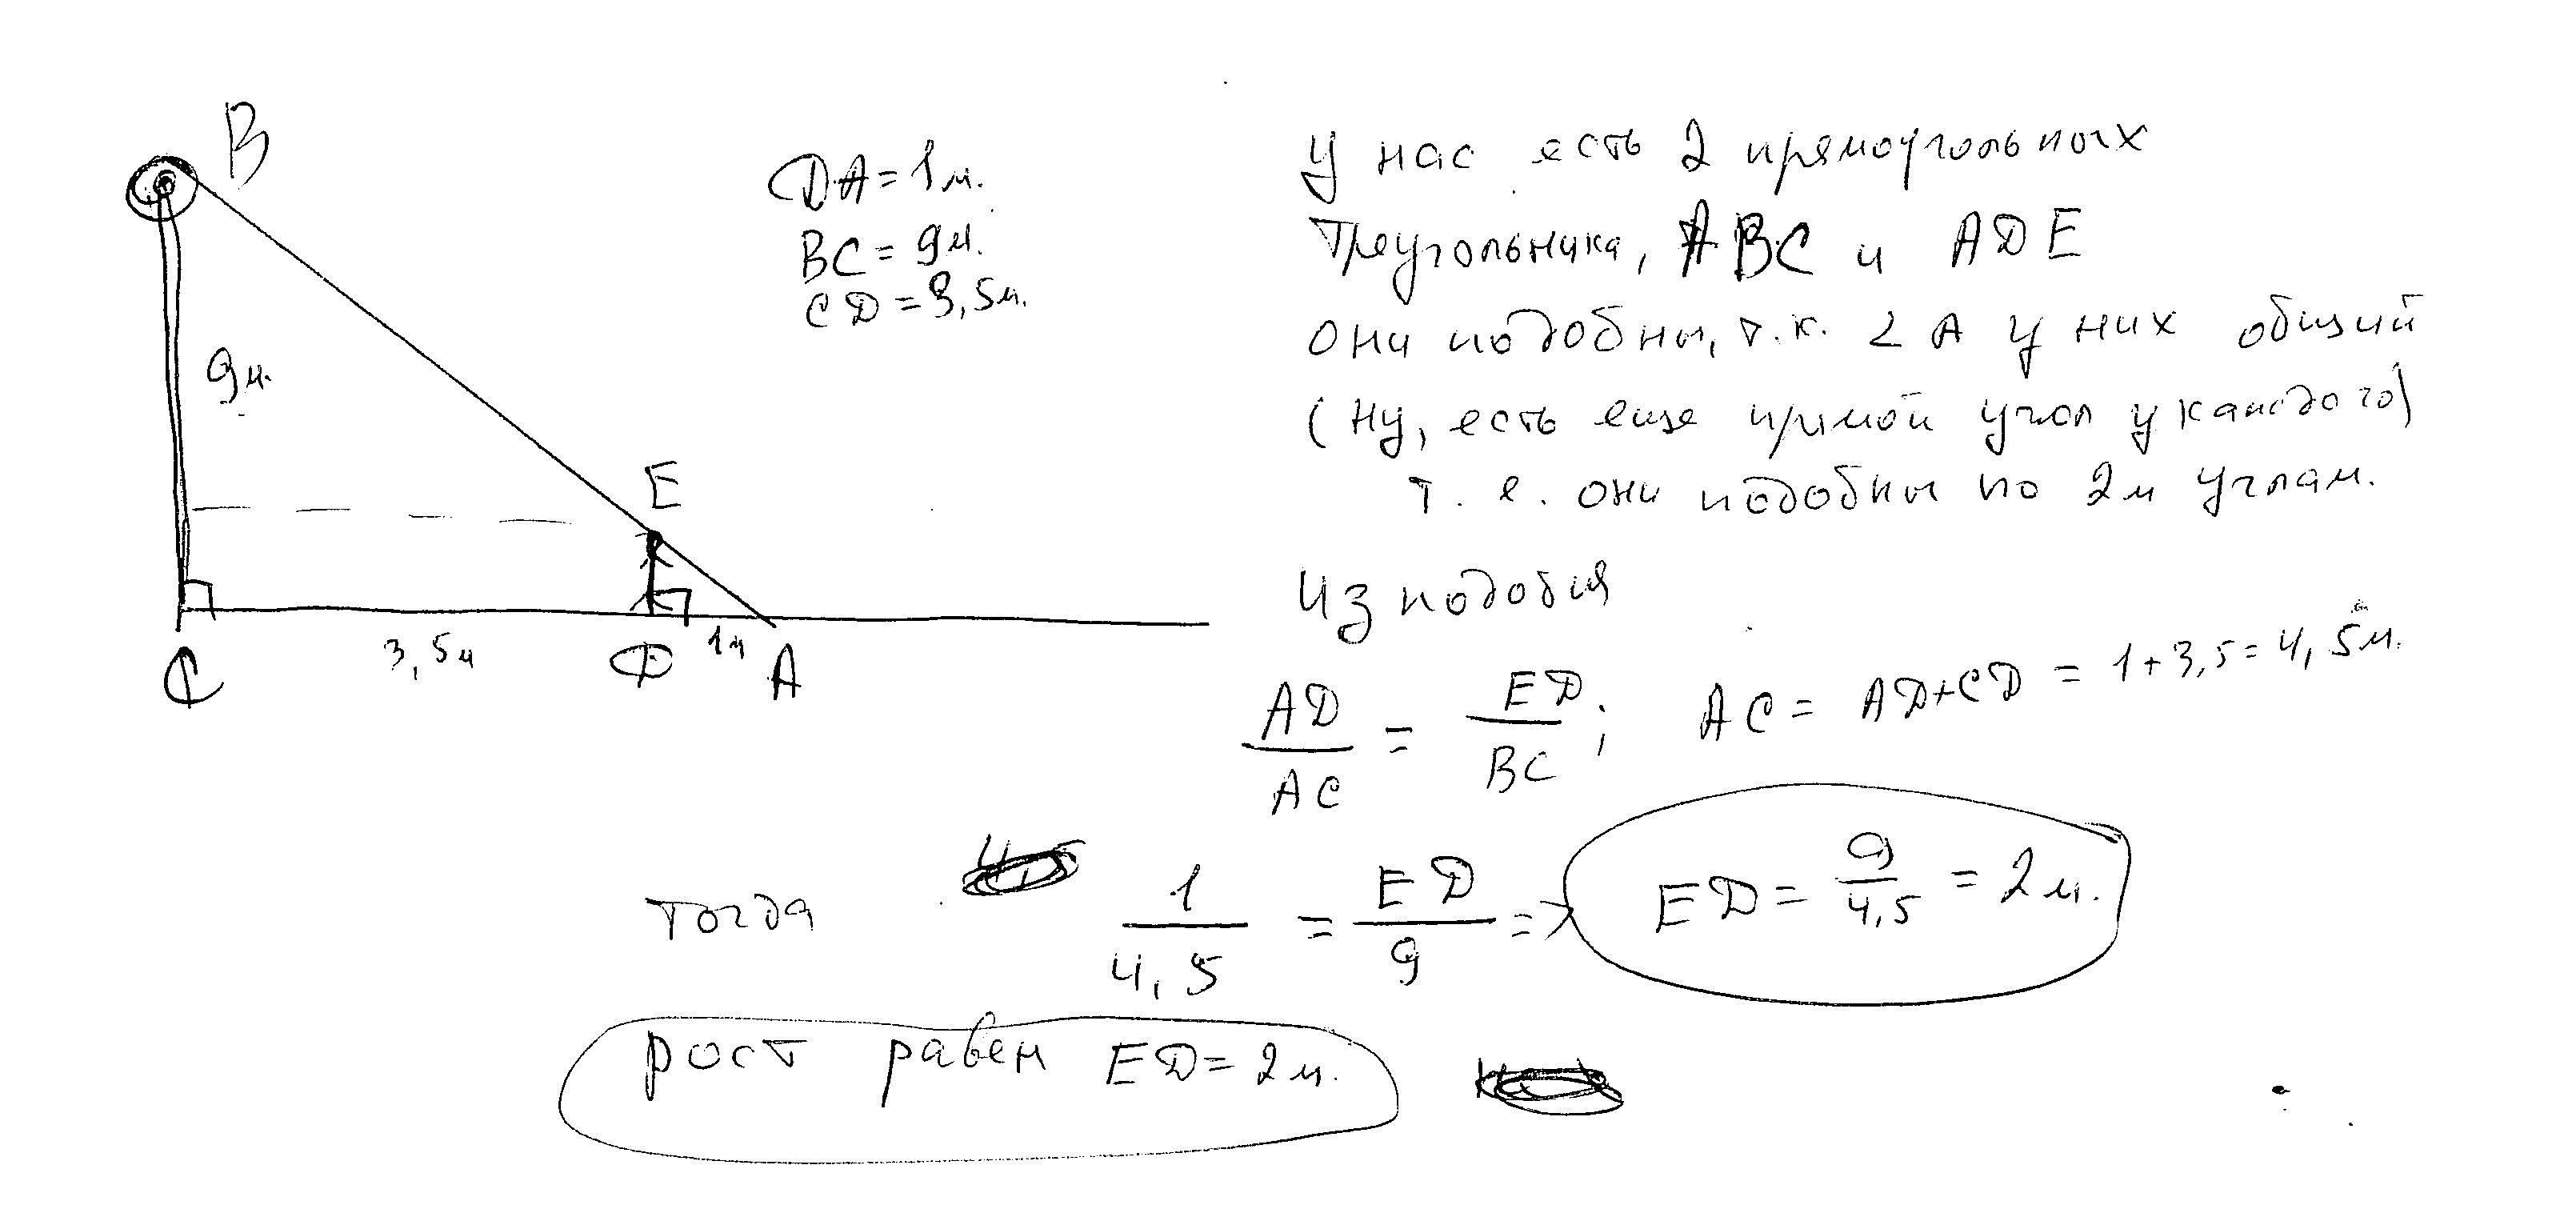 B
DA = 1 м.
BC = 9 м.
CD = 3,5 м.
9 м.
E
3,5 м
1 м
C
D
A
У нас есть 2 прямоугольных
треугольника, ABC и ADE
они подобны, т.к. ∠ A у них общий
(ну, есть еще прямой угол у каждого)
т. е. они подобны по 2м углам.
Из подобия
AD/AC = ED/BC; AC = AD+CD = 1+3,5 = 4,5 м.
тогда 1/4,5 = ED/9 => ED = 9/4,5 = 2 м.
рост равен ED = 2 м.